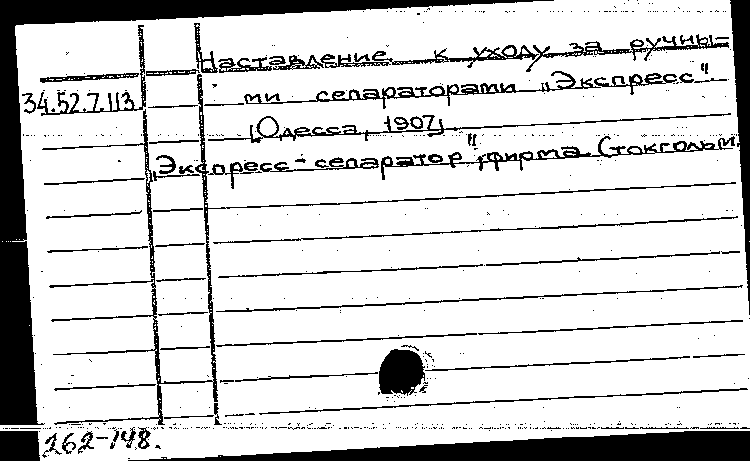 Наставление к уходу за ручны-
34.52.7.113 ми сепараторами „Экспресс"
[Одесса, 1907]
„Экспресс-сепаратор", фирма Стокгольм.
262-148.